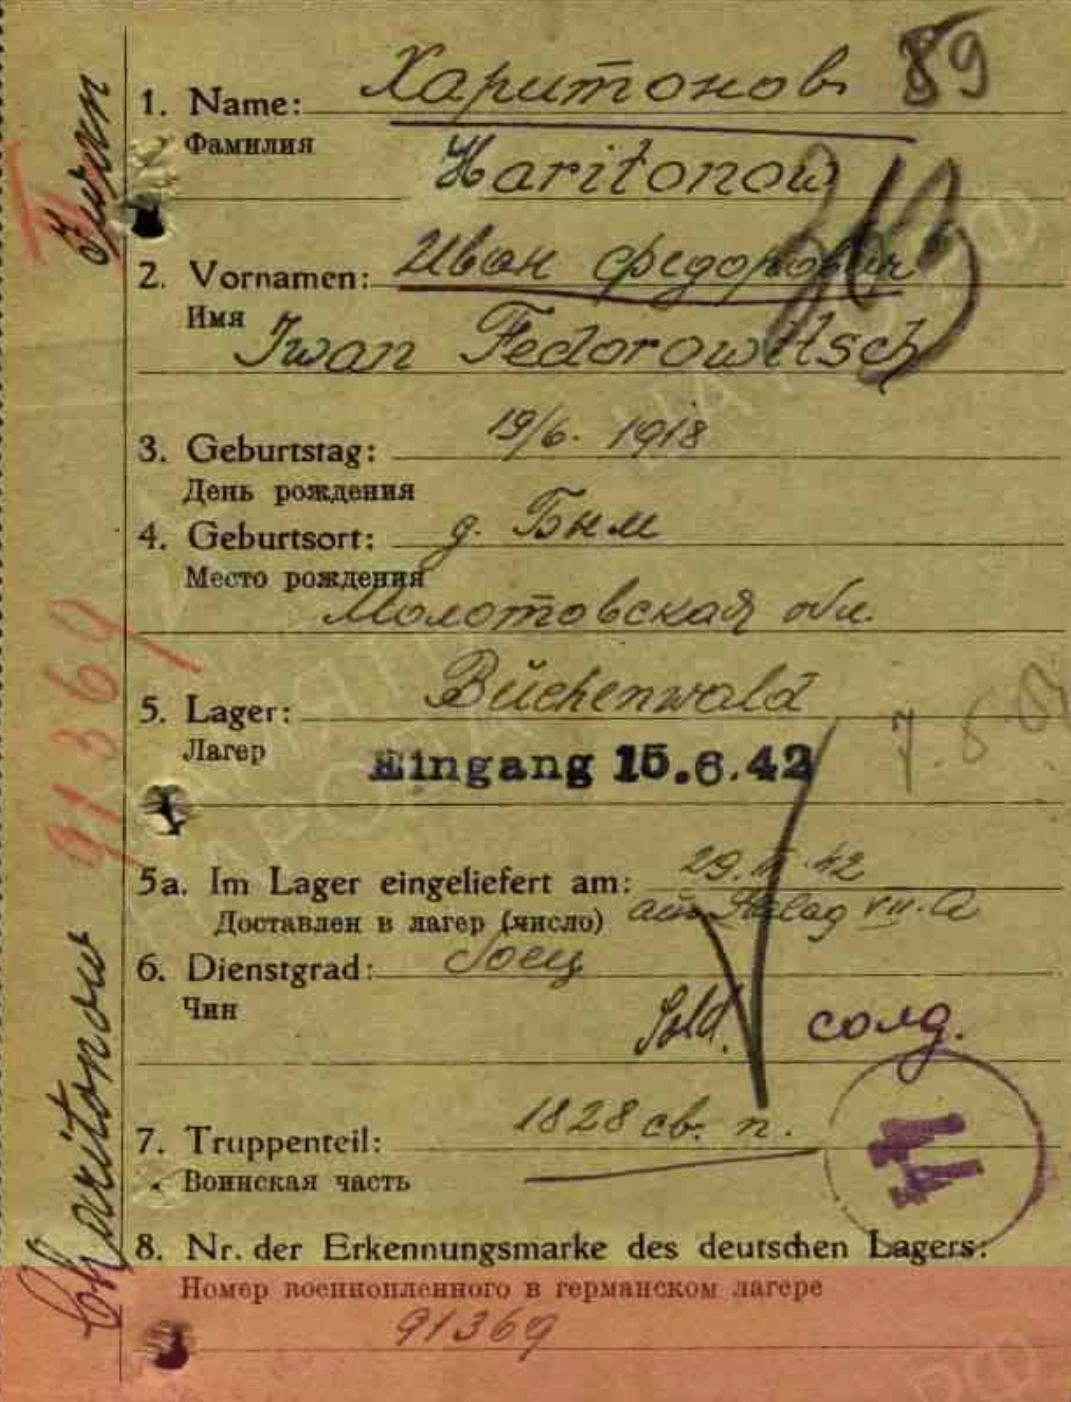 Харитонов 89
1. Name:
Фамилия
Haritonow
Иван Федорович
2. Vornamen:
Имя
Iwan Fedorowitsch
19/6. 1918
3. Geburtstag:
День рождения
4. Geburtsort: д. Бым
Место рождения
Молотовская обл.
Buchenwald
5. Lager:
Лагер
Eingang 15.6.42
5a. Im Lager eingeliefert am: 29. 42
Доставлен в лагер (число) Stalag VII. A
6. Dienstgrad: боец
Чин
Sold. солд.
1828 св. п.
7. Truppenteil:
Воинская часть
8. Nr. der Erkennungsmarke des deutschen Lagers:
Номер военнопленного в германском лагере
91369
Iwan
91369
Charitonow